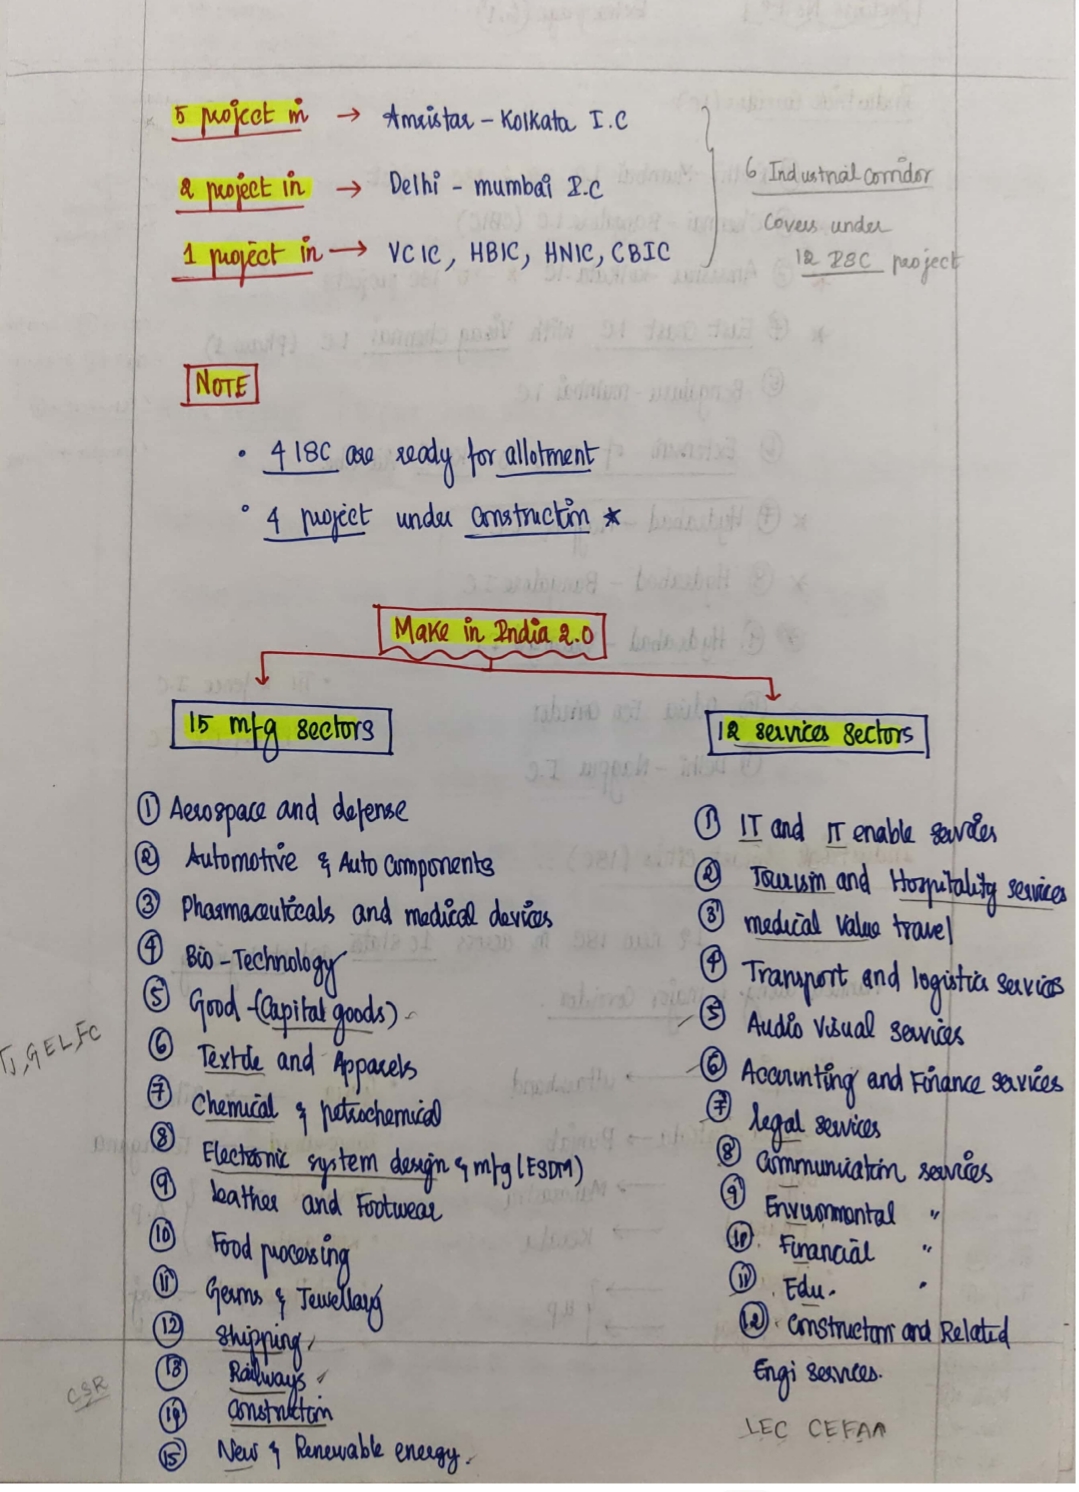 5 project in → Amristar - Kolkata I.C
2 project in → Delhi - mumbai I.C
1 project in → VCIC, HBIC, HNIC, CBIC
6 Industrial Corridor
Covers under
12 ISC project
NOTE
• 4 ISC are ready for allotment
• 4 project under Construction *
Make in India 2.0
15 mfg sectors
① Aerospace and defense
② Automotive & Auto Components
③ Pharmaceuticals and medical devices
④ Bio-Technology
⑤ Good -(Capital goods)
⑥ Textile and Apparels
⑦ Chemical & petrochemical
⑧ Electronic system design & mfg (ESDM)
⑨ leather and Footwear
⑩ Food processing
⑪ Germs & Jewellary
⑫ Shipping
⑬ Railways
⑭ Construction
⑮ New & Renewable energy.
12 services sectors
① IT and IT enable services
② Tourism and Hospitality services
③ medical value travel
④ Transport and logistics services
⑤ Audio Visual services
⑥ Accounting and Finance services
⑦ legal services
⑧ Communication services
⑨ Environmental "
⑩ Financial "
⑪ Edu. "
⑫ Construction and Related
Engi services.
LEC CEFAM
CSR